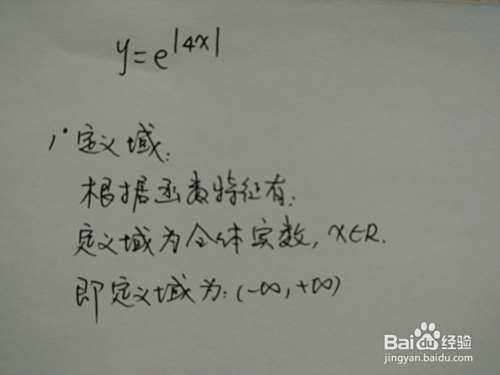 y=e^|4x|
1.定义域:
根据函数特征有:
定义域为全体实数,x∈R.
即定义域为:(-∞,+∞)
Baidu经验
jingyan.baidu.com